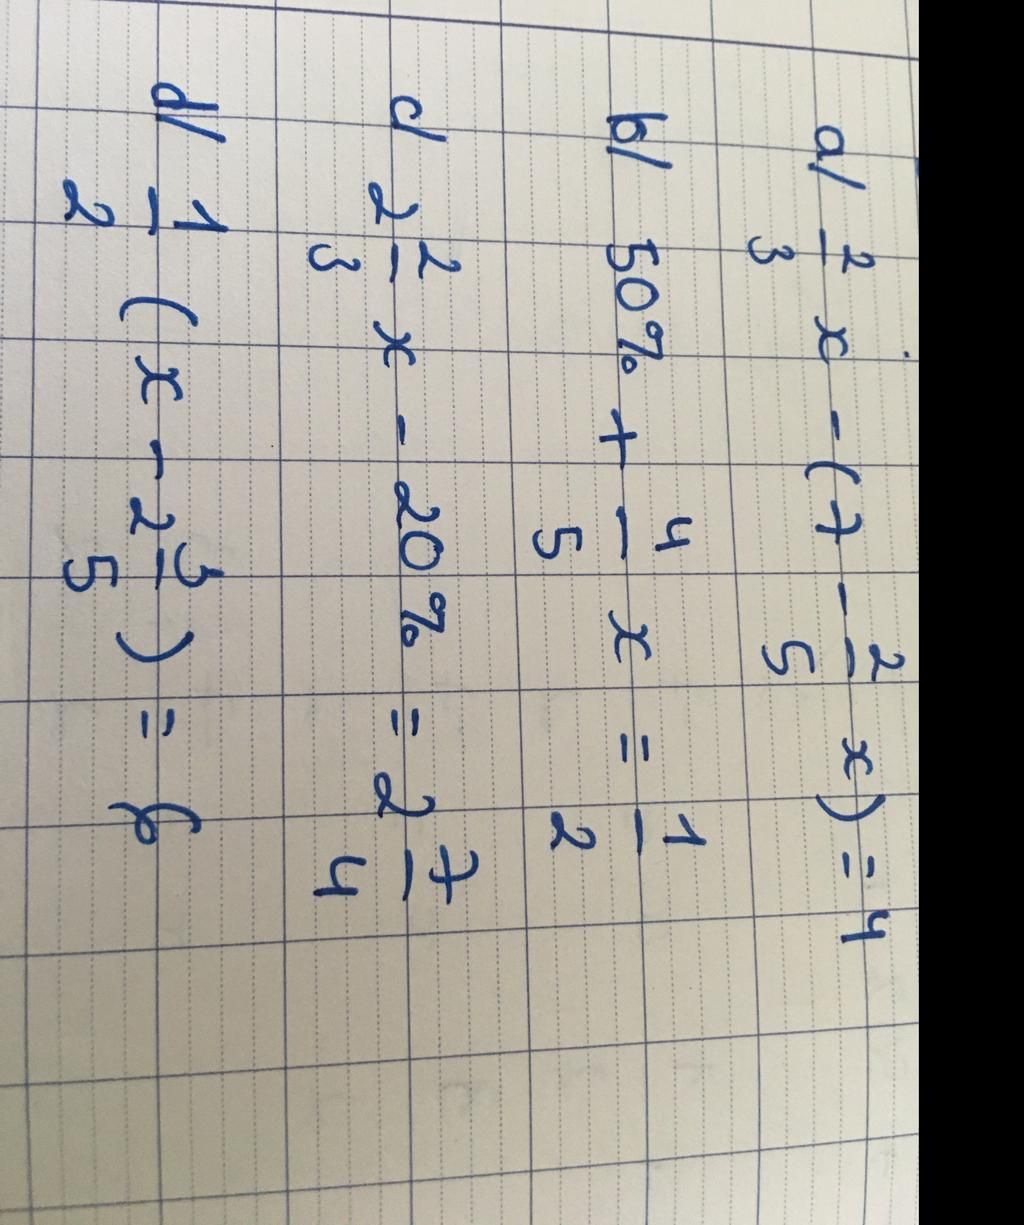 a/ 2/3 x - (7 - 2/5 x) = 4
b/ 50% + 4/5 x = 1/2
c/ 2 2/3 x - 20% = 2 7/4
d/ 1/2 (x - 2 3/5) = 6